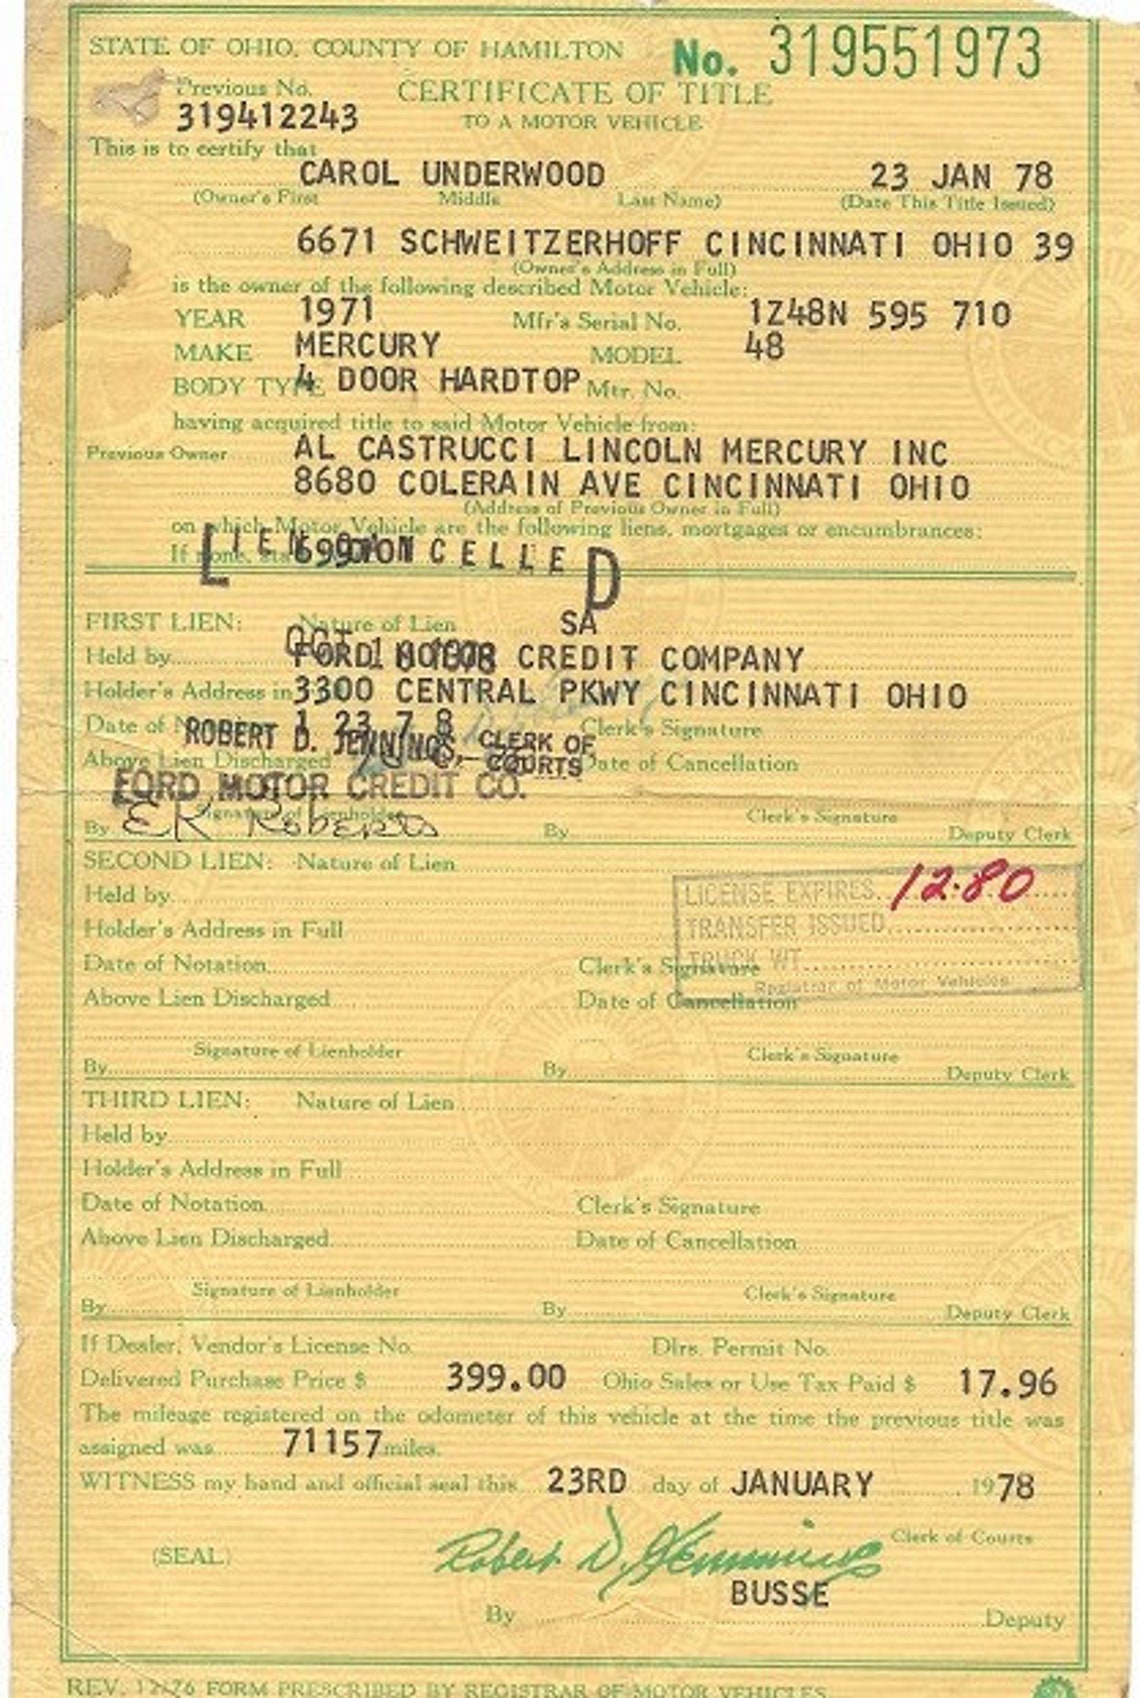 STATE OF OHIO, COUNTY OF HAMILTON No. 319551973
Previous No. CERTIFICATE OF TITLE
319412243 TO A MOTOR VEHICLE
This is to certify that
CAROL UNDERWOOD 23 JAN 78
(Owner's First Middle Last Name) (Date This Title Issued)
6671 SCHWEITZERHOFF CINCINNATI OHIO 39
(Owner's Address in Full)
is the owner of the following described Motor Vehicle:
YEAR 1971 Mfr's Serial No. 1Z48N 595 710
MAKE MERCURY MODEL 48
BODY TYPE 4 DOOR HARDTOP Mtr. No.
having acquired title to said Motor Vehicle from:
Previous Owner AL CASTRUCCI LINCOLN MERCURY INC
8680 COLERAIN AVE CINCINNATI OHIO
(Address of Previous Owner in Full)
on which Motor Vehicle are the following liens, mortgages or encumbrances:
If none, LIEN CANCELLED
FIRST LIEN: Nature of Lien SA
Held by FORD MOTOR CREDIT COMPANY
Holder's Address in 3300 CENTRAL PKWY CINCINNATI OHIO
Date of 1 23 78 Clerk's Signature
ROBERT D. JENNINGS, CLERK OF COURTS
Above Lien Discharged Date of Cancellation
FORD MOTOR CREDIT CO.
Signature of Lienholder Clerk's Signature
By EK Roberts By Deputy Clerk
SECOND LIEN: Nature of Lien
LICENSE EXPIRES 12-80
Held by
TRANSFER ISSUED
Holder's Address in Full
TRUCK WT.
Date of Notation Clerk's Signature
Registrar of Motor Vehicles
Above Lien Discharged Date of Cancellation
Signature of Lienholder Clerk's Signature
By By Deputy Clerk
THIRD LIEN: Nature of Lien
Held by
Holder's Address in Full
Date of Notation Clerk's Signature
Above Lien Discharged Date of Cancellation
Signature of Lienholder Clerk's Signature
By By Deputy Clerk
If Dealer, Vendor's License No. Dlrs. Permit No.
Delivered Purchase Price $ 399.00 Ohio Sales or Use Tax Paid $ 17.96
The mileage registered on the odometer of this vehicle at the time the previous title was
assigned was 71157 miles.
WITNESS my hand and official seal this 23RD day of JANUARY 1978
Clerk of Courts
(SEAL) Robert D. Jennings
BUSSE
By Deputy
REV. 12/76 FORM PRESCRIBED BY REGISTRAR OF MOTOR VEHICLES